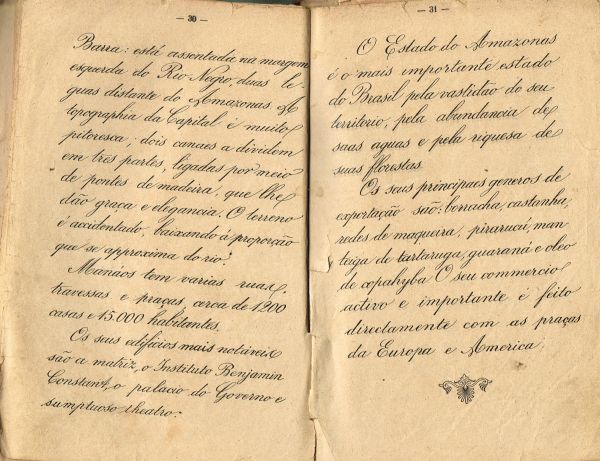 — 30 —
Barra: está assentada na margem
esquerda do Rio Negro, duas le-
guas distante do Amazonas. A
topographia da Capital é muito
pitoresca; dois canaes a dividem
em três partes, ligadas por meio
de pontes de madeira, que lhe
dão graça e elegancia. O terreno
é accidentado, baixando á proporção
que se approxima do rio.
Manáos tem varias ruas,
travessas e praças, cerca de 1200
casas e 15.000 habitantes.
Os seus edificios mais notáveis
são a matriz, o Instituto Benjamin
Constant, o palacio do Governo e
sumptuoso theatro.
— 31 —
O Estado do Amazonas
é o mais importante estado
do Brasil pela vastidão do seu
territorio, pela abundancia de
suas aguas e pela riquesa de
suas florestas.
Os seus principaes generos de
exportação são: borracha, castanha,
redes de maqueira, pirarucú, man
teiga de tartaruga, guaraná e oleo
de copahyba. O seu commercio
activo e importante é feito
directamente com as praças
da Europa e America.